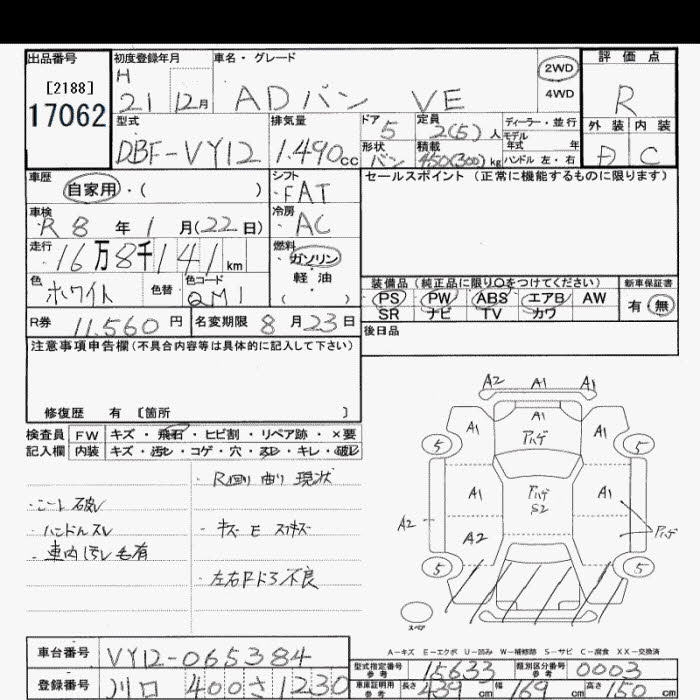 出品番号 初度登録年月 車名・グレード 評価点
[2188] H 2WD
17062 21 12月 ADバン VE 4WD R
型式 排気量 ドア 定員 ディーラー・並行 外装 内装
DBF-VY12 1.490cc 5 2(5)人 モデル年式 年 D C
形状 積載 ハンドル 左・右
バン 450(300)kg
車歴 シフト セールスポイント (正常に機能するものに限ります)
自家用・( ) FAT
車検 冷房
R8年1月(22日) AC
走行 燃料
16万8千141km ガソリン
色 色替 色コード 軽油
ホワイト QM1 ( )
装備品(純正品に限り○をつけてください) 新車保証書
PS PW ABS エアB AW 有 無
SR ナビ TV カワ
R券 11,560円 名変期限 8月23日 後日品
注意事項申告欄(不具合内容等は具体的に記入して下さい)
修復歴 有 [箇所 ]
検査員 FW キズ・飛石・ヒビ割・リペア跡・×要
記入欄 内装 キズ・汚レ・コゲ・穴・スレ・キレ・破レ
・R回り曲り 現状
・シート破レ
・ハンドルスレ ・キズ E スリキズ
・車内汚レ毛有
・左右Fドろ不良
A2 A1 A1
A1
A1 アハゲ A1
5 5
A1 アハゲ A1
S2
A2 A2 アハゲ
5 5
スペア
A-キズ E-エクボ U-凹み W-補修跡 S-サビ C-腐食 XX-交換済
車台番号 VY12-065384
型式指定番号 参考 15633 類別区分番号 参考 0003
登録番号 川口 400さ1230
車庫証明用 参考 長さ 439cm 幅 169cm 高さ 150cm